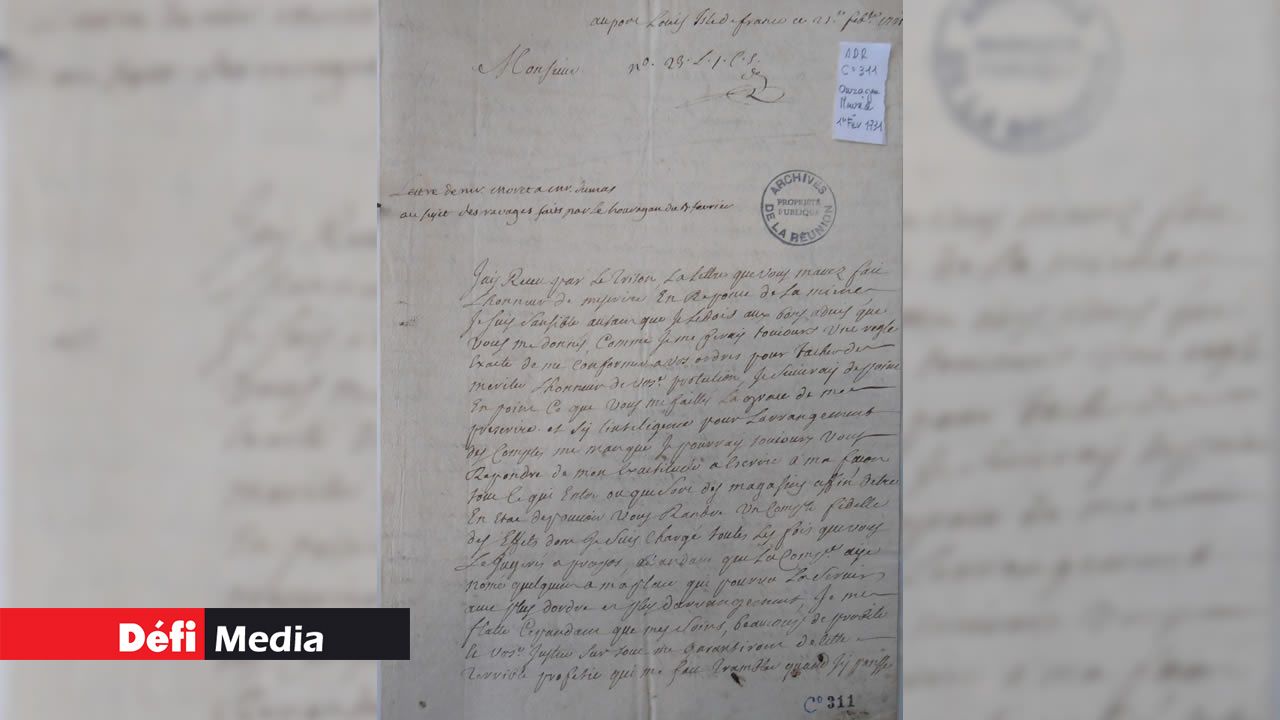 au port Louis Isle de france ce 21.e feb.er 1731
Monsieur
n.o 23. L. 1. C. S.
ADR
C° 311
Ouragan
1er Fév 1731
Lettre de mr. a mr. Dumas
au sujet des ravages faits par le houragan du fevrier
ARCHIVES
DE LA RÉUNION
PROPRIÉTÉ
PUBLIQUE
Jais Receu par Le Triton La Lettre que vous mavez fait
Lhonneur de mescrire En Reponce de La miene
Je suis sansible autant que Je Ledois aux bons advis que
vous me donnes, Comme Je me ferais toujours Une regle
Exacte de me conformer a vos ordres pour tacher de
meriter Lhonneur de vos.e protection, Je suivrais de poine
En poine Ce que vous me faittes La grace de me
prescrire. et Sy Lintelligence pour Larrangement
des Comptes me manque Je pourray toujours vous
Repondre de mon Exactitude a Escrire a ma facon
tout Ce qui Entre ou que Sort des magasins affin destre
En Etat de pouvoir vous Randre Un Compte fidelle
des Effets dont Je Suis Chargé toutes Les fois que vous
Le Jugerés apropos, que La Comp.e aye
nomé quelquun a ma place qui pourra La Servir
avec plus dordre et plus darrangement. Je me
flatte Cependant que mes Soins, beaucoup de probité
et vos.e Justice Sur tout me garantiront de Cette
terrible profetie qui me fait trambler quand Jy pansse
C° 311
Défi Media